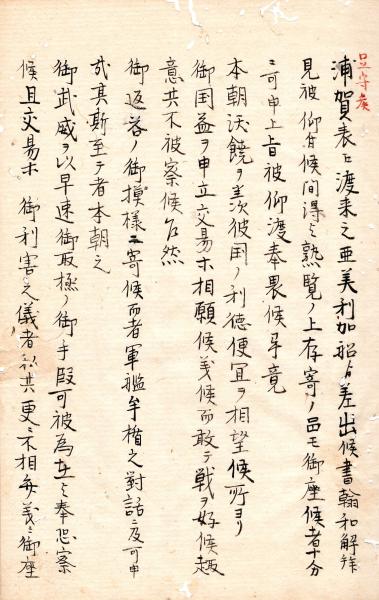 浦賀表ニ渡来之亜美利加船ゟ差出候書翰和解
見被仰付候間得与熟覧ノ上存寄ノ品モ御座候者十分
ニ可申上旨被仰渡奉畏候畢竟
本朝沃饒ヲ羨次彼国ノ利徳便宜ヲ相望候所ヨリ
御国益ヲ申立交易ホ相願候義候而敢テ戦ヲ好候趣
意共不被察候乍然
御返答ノ御摸様ニ寄候而者軍艦半楯之対話ニ及可申
哉其斯至テ者本朝之
御武威ヲ以早速御取極ノ御手段可被為在与奉恐察
候且交易ホ 御利害之儀者私共更ニ不相弁義ニ御座